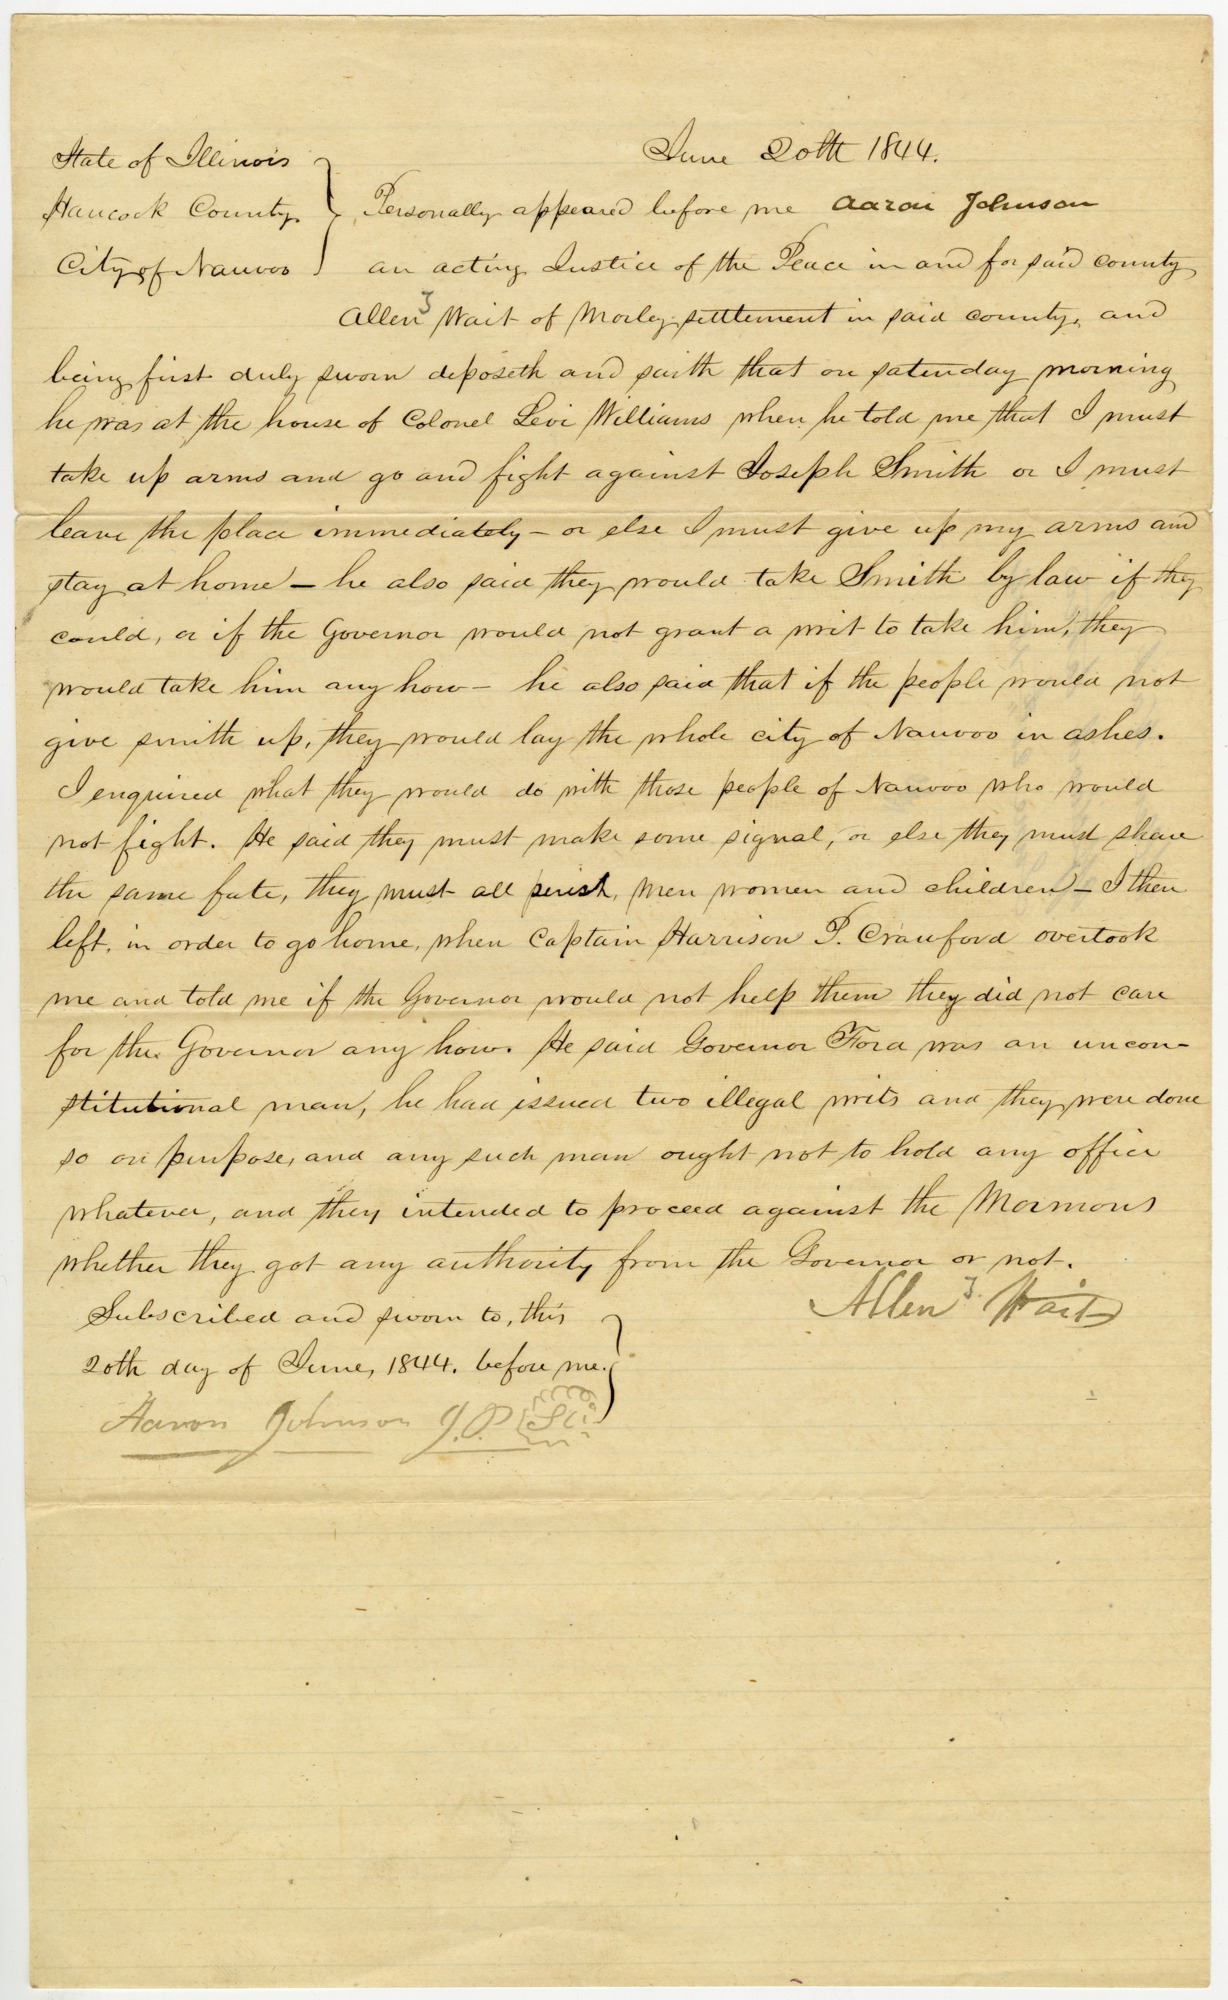 June 20th 1844.
State of Illinois
Hancock County
City of Nauvoo
Personally appeared before me Aaron Johnson
an acting Justice of the Peace in and for said county
Allen J Wait of Morley settlement in said county, and
being first duly sworn deposeth and saith that on saturday morning
he was at the house of Colonel Levi Williams when he told me that I must
take up arms and go and fight against Joseph Smith or I must
leave the place immediately – or else I must give up my arms and
stay at home – he also said they would take Smith by law if they
could, or if the Governor would not grant a writ to take him, they
would take him any how – he also said that if the people would not
give smith up, they would lay the whole city of Nauvoo in ashes.
I enquired what they would do with those people of Nauvoo who would
not fight. He said they must make some signal, or else they must share
the same fate, they must all perish, men women and children – I then
left, in order to go home, when Captain Harrison P. Crawford overtook
me and told me if the Governor would not help them they did not care
for the Governor any how. He said Governor Ford was an uncon-
stitutional man, he had issued two illegal writs and they were done
so on purpose, and any such man ought not to hold any office
whatever, and they intended to proceed against the Mormons
whether they got any authority from the Governor or not.
Allen J Wait
Subscribed and sworn to, this
20th day of June, 1844. before me.
Aaron Johnson J.P.